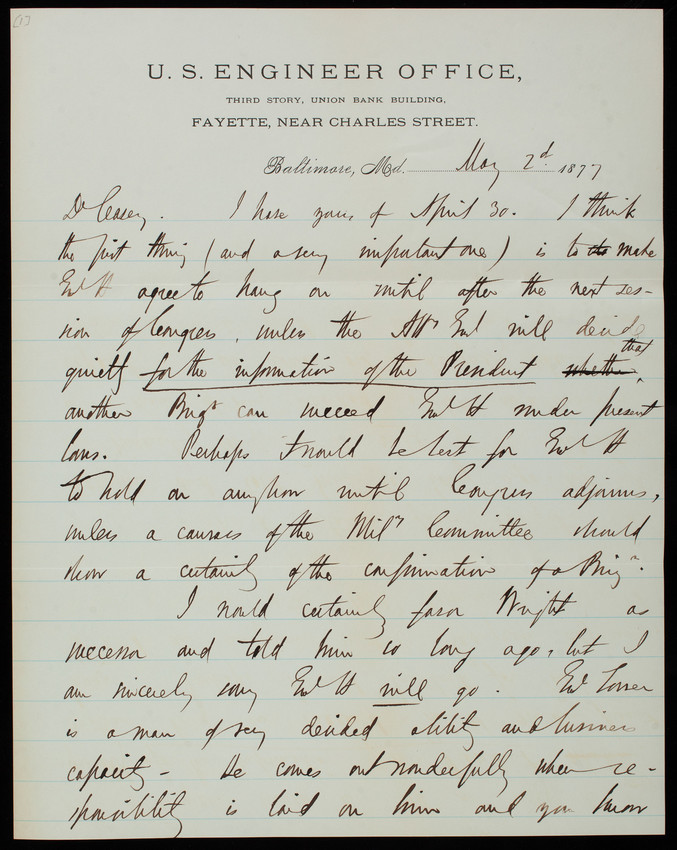 (1)
U. S. ENGINEER OFFICE,
THIRD STORY, UNION BANK BUILDING,
FAYETTE, NEAR CHARLES STREET.
Baltimore, Md. May 2d 1877
Dr Casey. I have yours of April 30. I think
the first thing (and a very important one) is to make
Genl H agree to hang on until after the next ses-
sion of Congress, unless the Atty Genl will decide
quietly for the information of the President whether that
another Brigr can succeed Genl H under present
laws. Perhaps it would be best for Genl H
to hold on anyhow until Congress adjourns,
unless a canvass of the Mily Committee should
show a certainty of the confirmation of a Brigr.
I would certainly favor Wright as
successor and told him so long ago, but I
am sincerely sorry Genl H will go. Genl Tower
is a man of very decided ability and business
capacity - He comes out wonderfully when re-
sponsibility is laid on him and you know